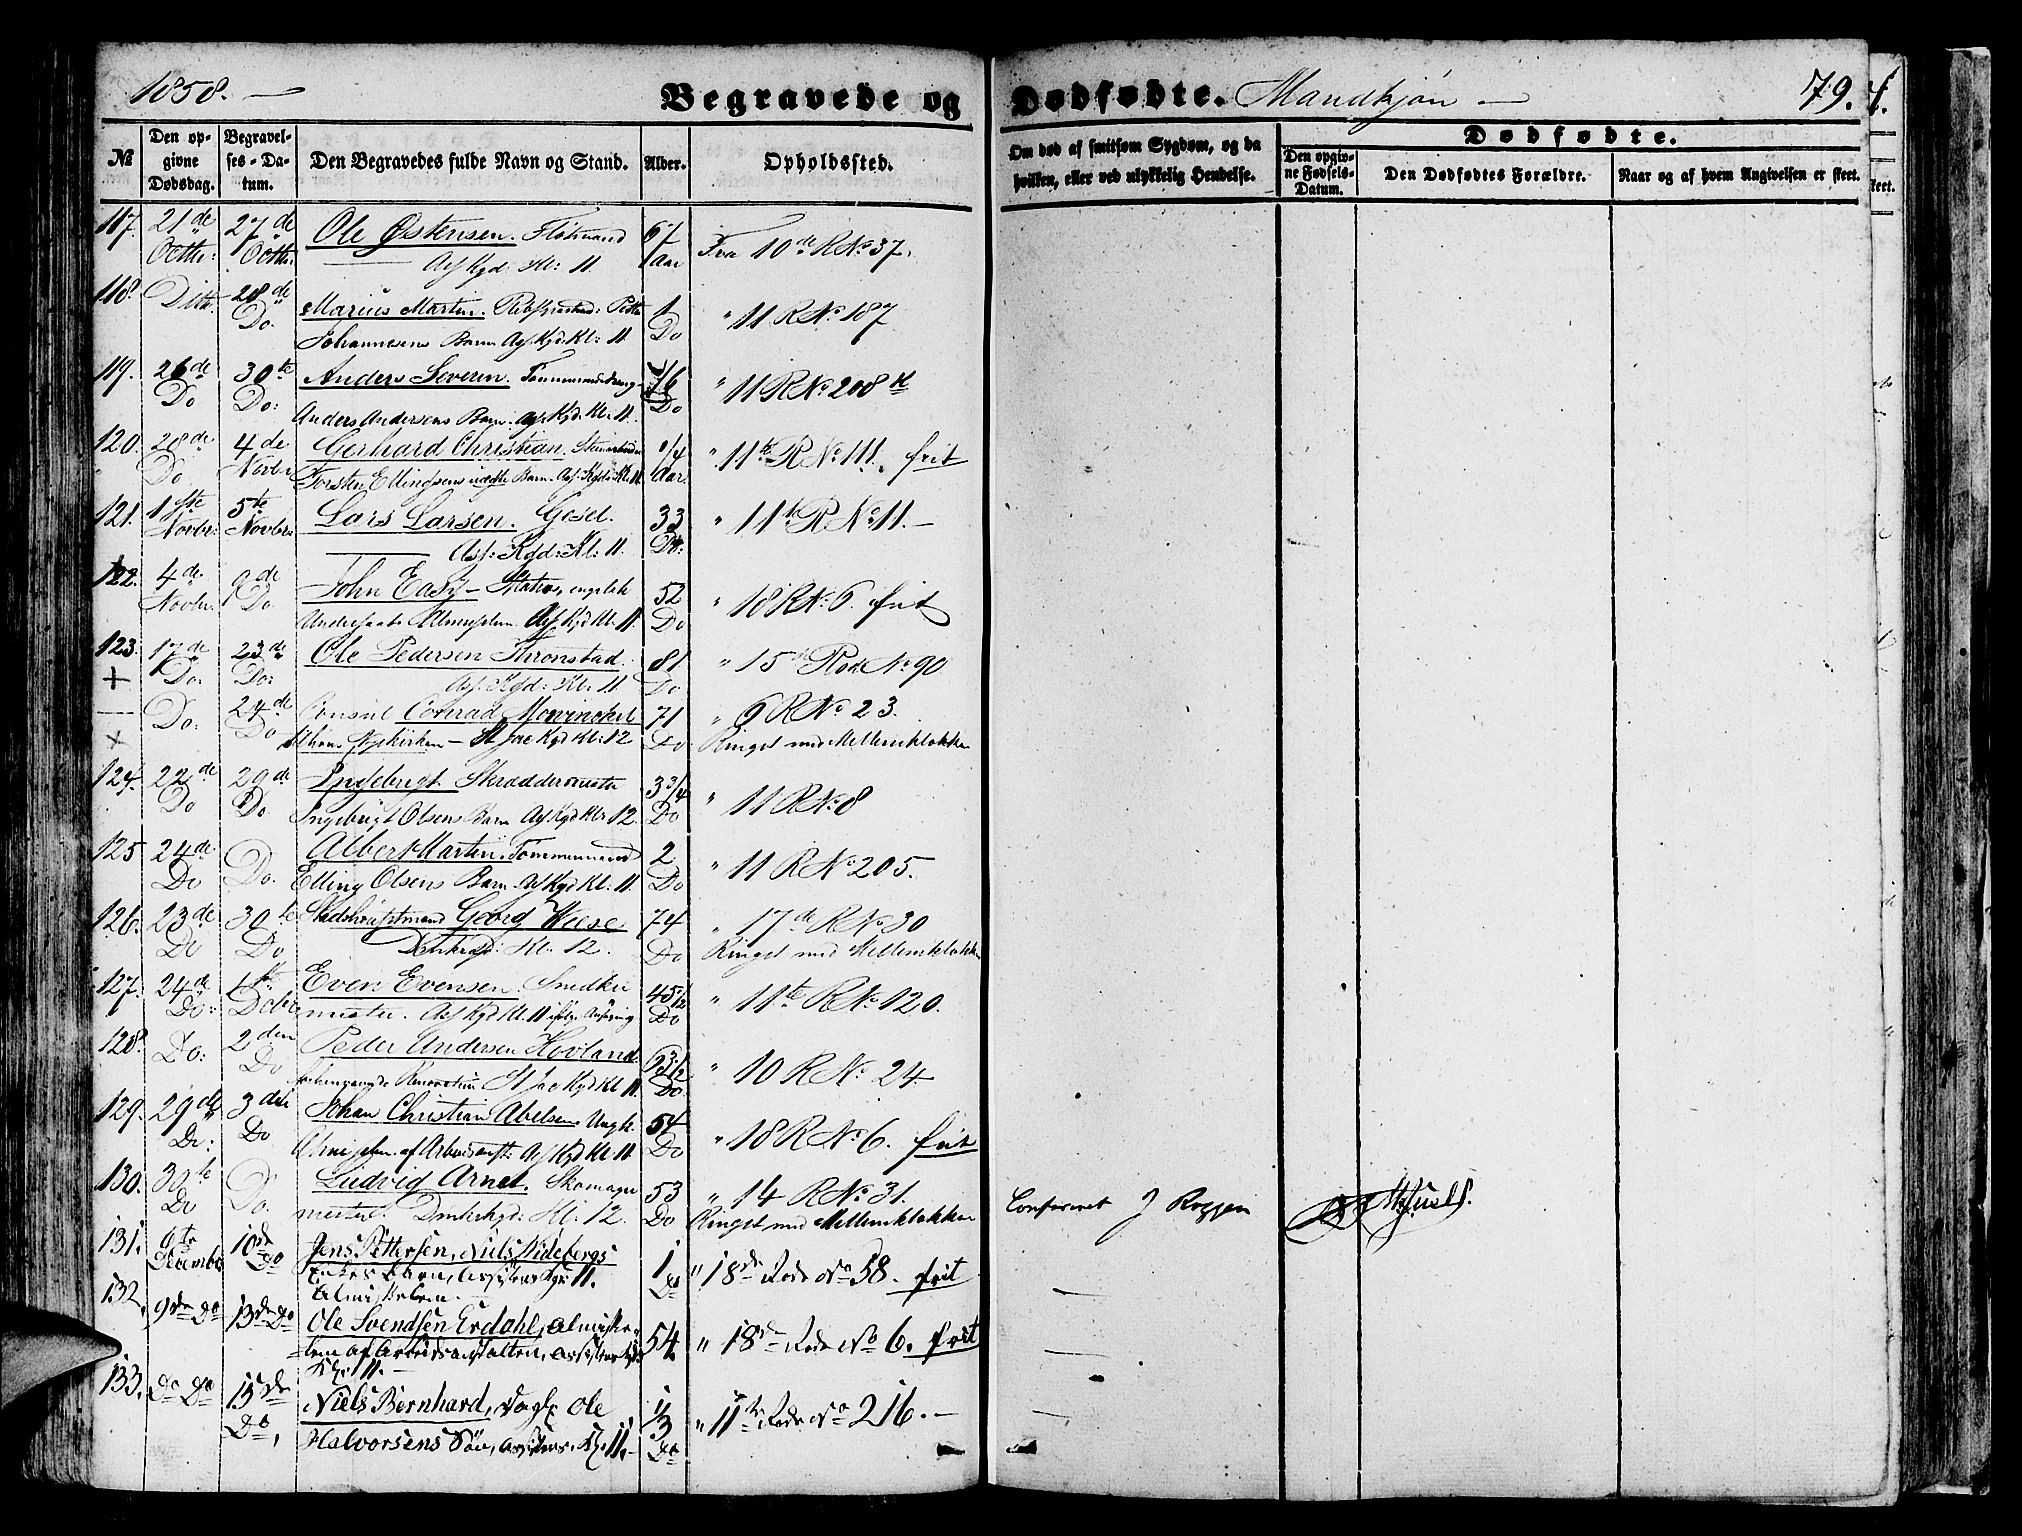 1858. —
Begravede og Dødfødte. Mandkjøn —
79.
№
Den opgivne Dødsdag.
Begravelses-Datum.
Den Begravedes fulde Navn og Stand.
Alder.
Opholdssted.
Om død af smitsom Sygdom, og da hvilken, eller ved ulykkelig Hendelse.
Dødfødte.
Den opgivne Fødsels-Datum.
Den Dødfødtes Forældre.
Naar og af hvem Angivelsen er skeet.
117. 21de 27de Ole Østensen. 67 Fra 10de R No 37.
Octbr: Octbr: Ass Kgd: Kl: 11. Aar
118. Ditto. 28de Marius Martin. 1 " 11 R No 187
Do. Johannesens Barn Ass. Kgd. Kl: 11 Do
119. 26de 30te Anders Severin. " 11 R No 208
Do Do: Anders Andersens Barn. Ass. Kgd. Kl. 11. Do
120. 28de 4de Gerhard Christian. 1/4 " 11te R No 111. frit
Do Novbr Torsten Ellingsens uægte Barn. Ass. Kgd. Kl. 11. Aar
121. 1ste 5te Lars Larsen. Gesel. 33 " 11te R No 11. —
Novbr: Novbr: Ass: Kgd: Kl: 11. Do:
122. 4de 9de John Easy — Matros, engelsk 52 " 18 R No 6. frit
Novbr. Do. Undersaat Almisselem. Ass Kgd Kl. 11. Do
123. 17de 23de Ole Pedersen Thronstad. 81 " 15de Rode No 90
+ Do. Do: Ass. Kgd: Kl. 11. Do
— Do: 24de Consul Conrad Mowinckel 71 " 6 R No 23.
+ Do Nykirken — St Jac Kgd Kl: 12 Do Ringet med Mellemklokken
124. 22de 29de Ingebrigt. Skræddermester 3 3/4 " 11 R No 8
Do Do. Ingebrigt Olsens Barn Ass Kgd Kl. 12. Do
125. 24de Do. Albert Martin. Tømmermand 2 " 11 R No 205.
Do Elling Olsens Barn. Ass Kgd Kl. 11. Do
126. 23de 30te Stadshauptmand Georg Wiese 74 " 17de R No 30
Do Do Kl. 12. Do Ringet med Mellemklokken
127. 24de 1ste Even Evensen. Snedker 45 1/2 " 11te R No 120.
Do: Decbr mester. Ass Kgd Kl. 11 ifølge Do
128. Do: 2den Peder Andersen Hovland. 63 1/2 " 10 R No 24
Do St Jac Kgd Kl 11. Do
129. 29de 3die Johan Christian Abelsen Ungk. 54 " 18 R No 6. frit
Do: Do Almisselem. af Arbeidsanst: Ass Kgd Kl. 11. Do
130. 30te Do. Ludvig Arnet. Skomager 53 " 14 R No 31.
Do mester. Kl. 12. Do Ringet med Mellemklokken
Confereret J Roggen
131. 6te 10de Jens Pettersen, Niels Videbergs 1 " 18de Rode No 58. frit
December Do Enkes Barn, Assistens Kgd: 11. Do
Almisselem. —
132. 9de Do 13de Do Ole Svendsen Erdahl, Almisse- 54. " 18de Rode No 6. frit
lem af Arbeidsanstalten, Assistens
Kl. 11. —
133. Do Do 15de Niels Bernhard, Ole 1/3 " 11te Rode No 216. —
Do, Halvorsens Søn, Assistens. Kl. 11. Do